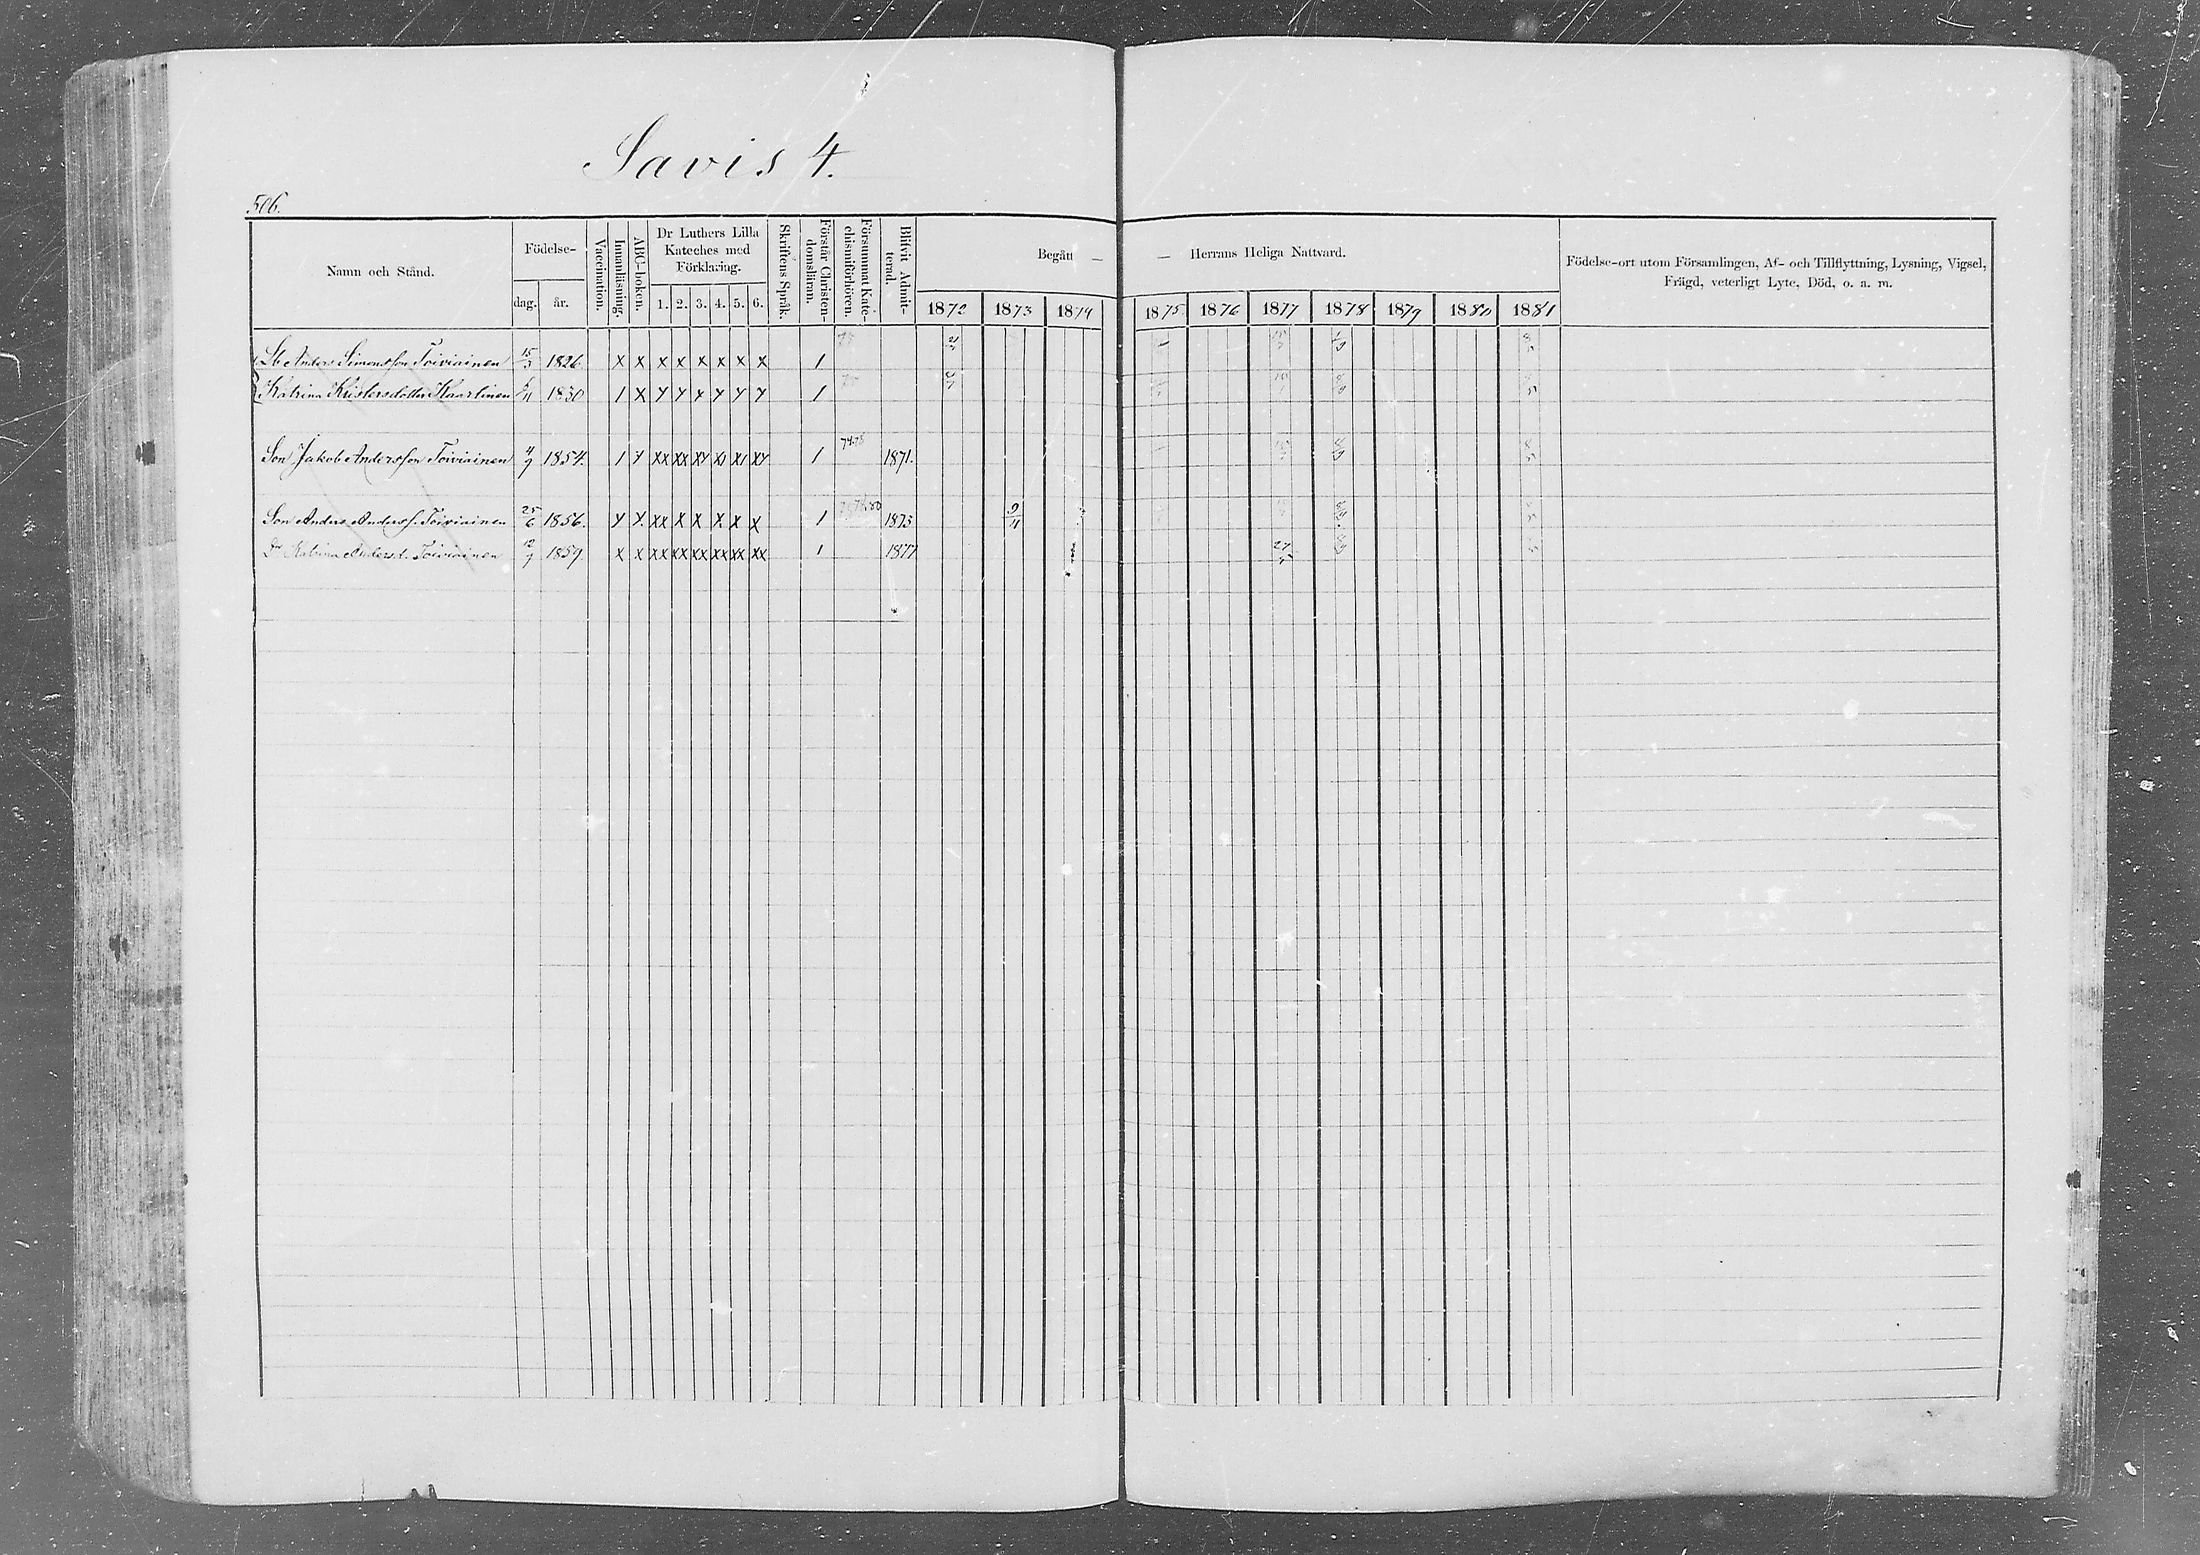 Savis 4.
506.
Namn och Stånd.
Födelse-
dag. år.
Vaccination.
Innanläsning.
ABC-boken.
Dr Luthers Lilla
Kateches med
Förklaring.
1. 2. 3. 4. 5. 6.
Skriftens Språk.
Förstår Christen-
domsläran.
Försummat Kate-
chismiförhören.
Blifvit Admit-
terad.
Begått — — Herrans Heliga Nattvard.
1872 1873 1874 1875 1876 1877 1878 1879 1880 1881
Födelse-ort utom Församlingen, Af- och Tillflyttning, Lysning, Vigsel,
Frägd, veterligt Lyte, Död, o. a. m.
Anders Simonsson Toiviainen 15/3 1826 x x x x x x x x 1
Katrina Kristersdotter Kaartinen 1830 1 x 1
Son Jakob Andersson Toiviainen 4/9 1854. 1 1 1871.
Son Anders Anderss. Toiviainen 25/6 1856. x x x x x 1 1873 9/11
Dr Katrina Andersd. Toiviainen 12/9 1859. x x xx xx xx xx xx xx 1 1877